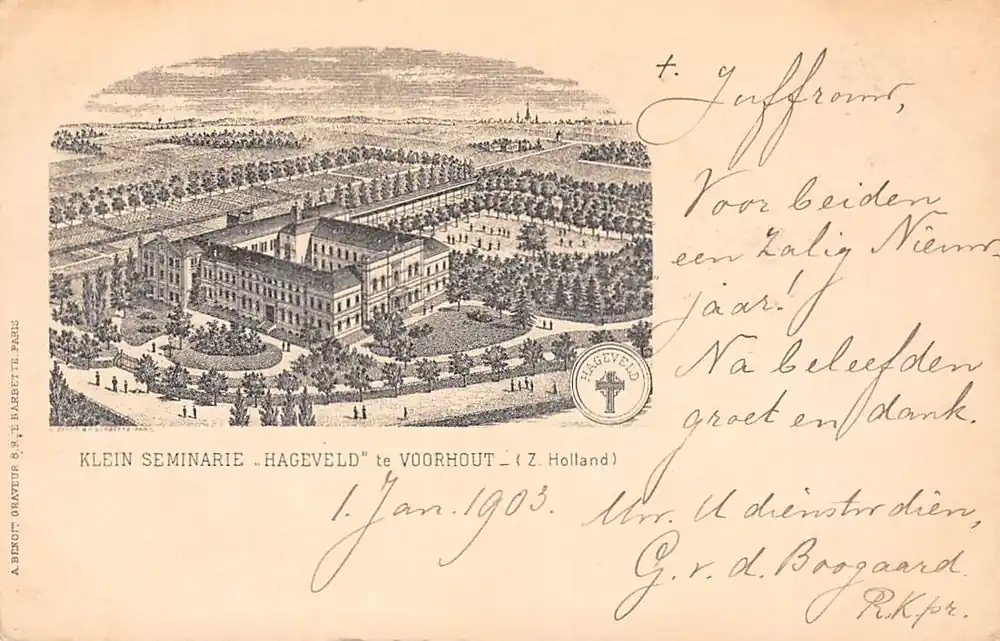 †. Juffrouw,
Voor beiden
een zalig Nieuw-
jaar!
Na beleefden
groet en dank.
HAGEVELD
KLEIN SEMINARIE „HAGEVELD" te VOORHOUT – (Z. Holland)
1. Jan. 1903.
U dienstw dien,
G. v. d. Boogaard.
R.K.pr.
A. BENOIT GRAVEUR 8, R. E BARBETTE. PARIS